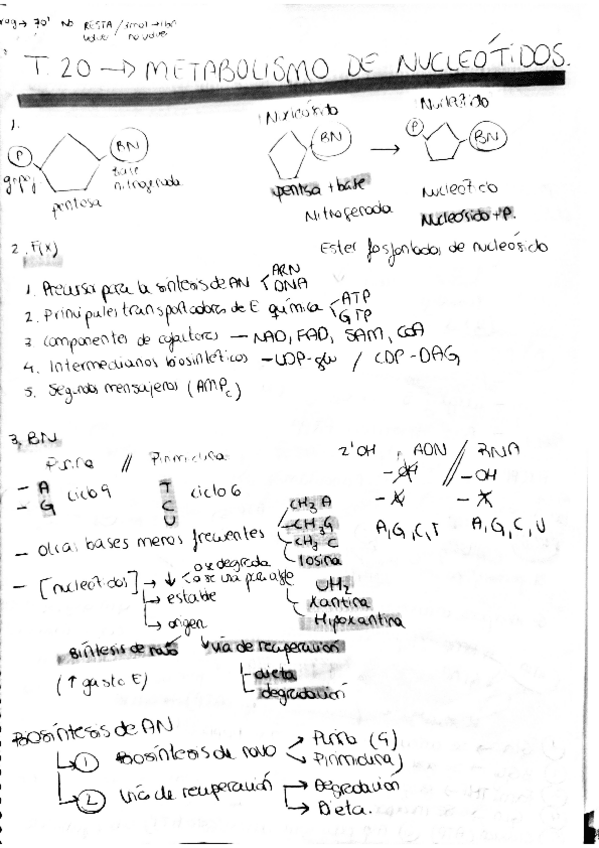 70' No RESTA / 
T. 20 → METABOLISMO DE NUCLEÓTIDOS.
1.
P BN
grupo base
nitrogenada
pentosa
Nucleósido Nucleótido
BN → P BN
pentosa + base
Nitrogenada
Nucleótido
Nucleósido + P.
Ester fosforilados de nucleósido
2. F(x)
1. Precursor para la síntesis de AN ARN DNA
2. Principales transportadores de E química ATP GTP
3 componentes de cofactores — NAD, FAD, SAM, CoA
4. Intermediarios biosintéticos - UDP-glu / CDP-DAG
5. Segundos mensajeros (AMPc)
3. BN
Purina // Pirimidina
- A
- G ciclo 9
T
C
U ciclo 6
2'OH ADN // RNA
- OH - OH
A, G, C, T A, G, C, U
- otras bases menos frecuentes
CH3 A
CH3 G
CH3 C
Iosina
UH2
Xantina
Hipoxantina
- [nucleótidos] → ↓ o se degrada
o se usa para algo
→ estable
→ origen
síntesis de novo vía de recuperación
(↑ gasto E)
dieta
degradación
BIOSÍNTESIS DE AN
1 Biosíntesis de novo → Purina (G)
→ Pirimidina
2 Vía de recuperación → Degradación
→ Dieta.